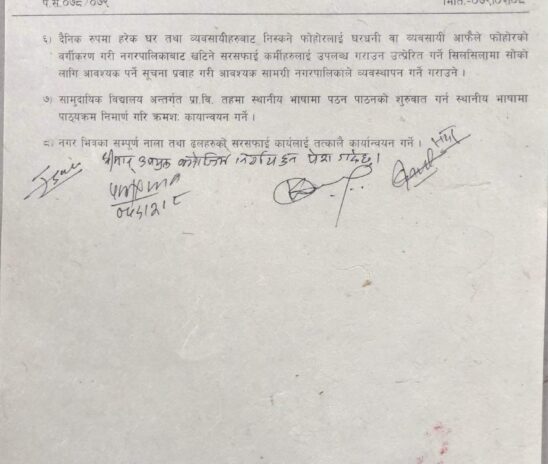 प.सं.०७८/०७९
६) दैनिक रुपमा हरेक घर तथा व्यवसायीहरुबाट निस्कने फोहोरलाई घरधनी वा व्यवसायी आफैले फोहोरको
वर्गीकरण गरी नगरपालिकाबाट खटिने सरसफाई कर्मीहरुलाई उपलब्ध गराउन उत्प्रेरित गर्ने सिलसिलामा सोको
लागि आवश्यक पर्ने सूचना प्रवाह गरी आवश्यक सामग्री नगरपालिकाले व्यवस्थापन गर्ने गराउने ।
७) सामुदायिक विद्यालय अन्तर्गत प्रा.वि. तहमा स्थानीय भाषामा पठन पाठनको शुरुबात गर्न स्थानीय भाषामा
पाठ्यकम निमार्ण गरि क्रमशः कायान्वयन गर्ने ।
८) नगर भित्रका सम्पूर्ण नाला तथा ढलहरुको सरसफाई कार्यलाई तत्कालै कार्यान्वयन गर्ने ।
श्रीमान्